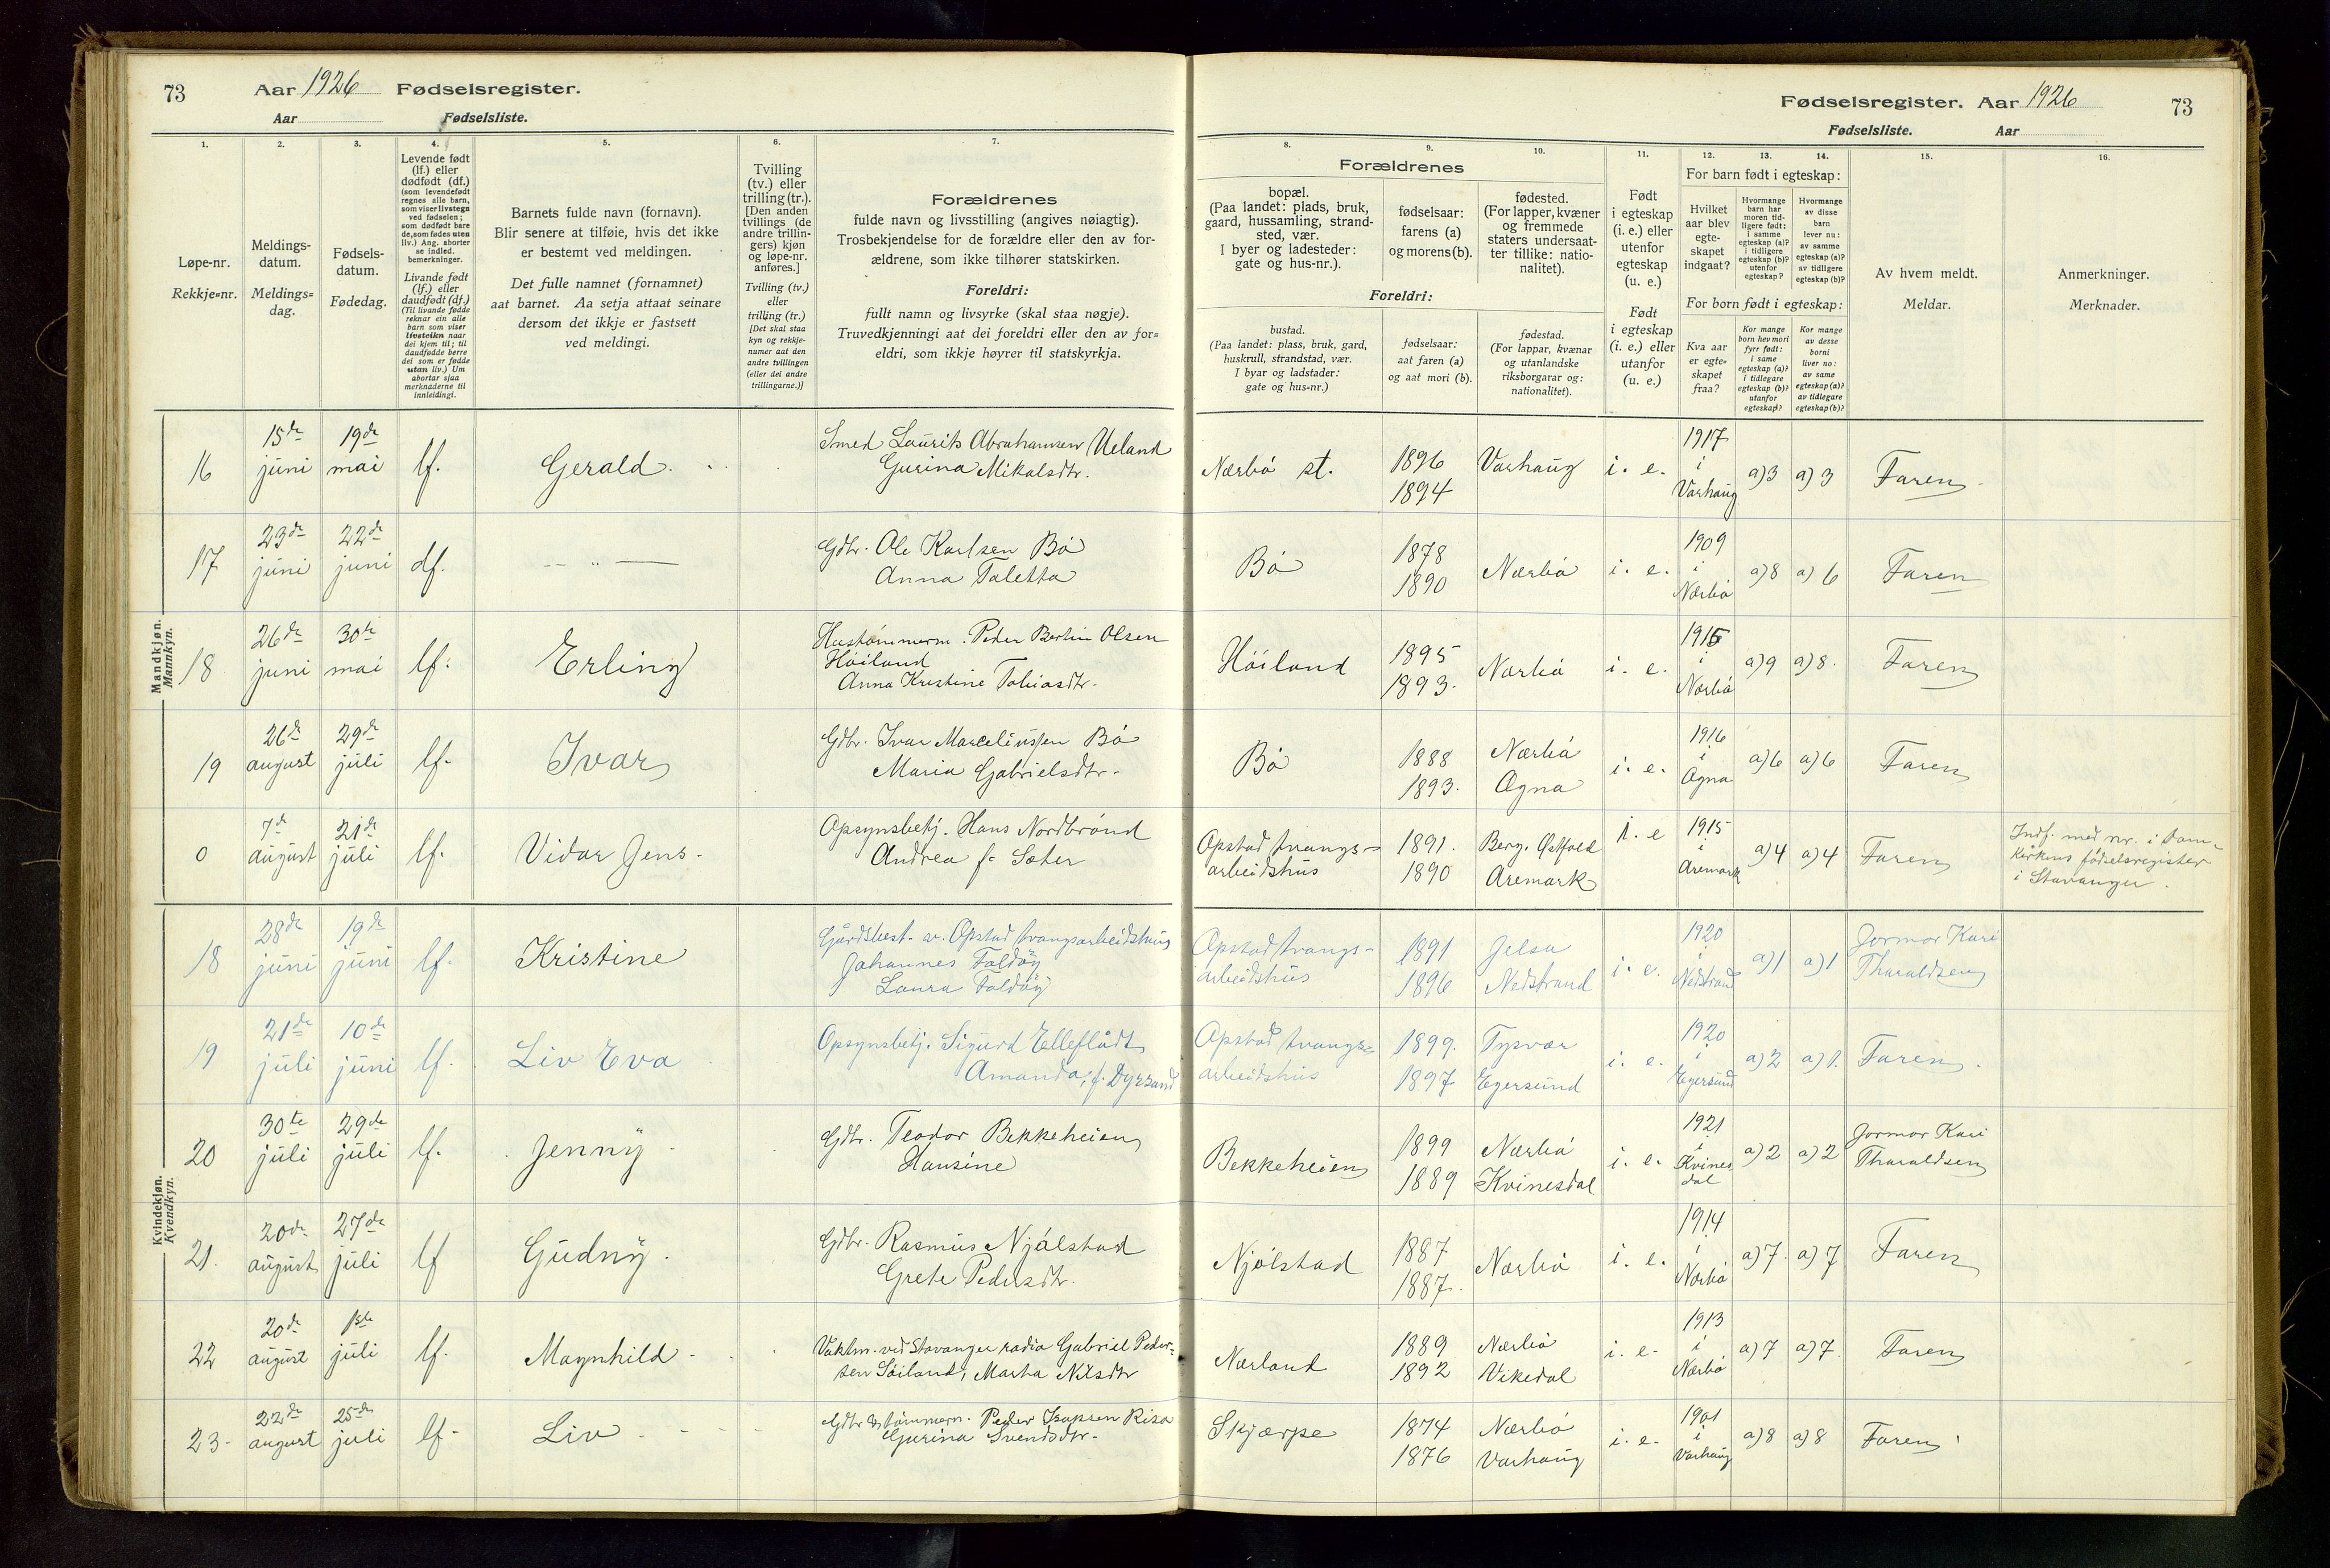 73
Aar 1926 Fødselsregister.
Aar
Fødselsliste.
1.
Løpe-nr.
Rekkje=nr.
2.
Meldings-
datum.
Meldings=
dag.
3.
Fødsels-
datum.
Fødedag.
4.
Levende født
(lf.) eller
dødfødt (df.)
(som levendefødt
regnes alle barn,
som viser livstegn
ved fødselen;
som dødfødt bare
de, som fødes uten
liv.) Ang. aborter
se indled.
bemerkninger.
Livande født
(lf.) eller
daudfødt (df.)
(Til livande fødde
reknar ein alle
barn som viser
livsteikn naar
dei kjem til; til
daudfødde berre
dei som er fødde
utan liv.) Um
abortar sjaa
merknaderne til
innleidingi.
5.
Barnets fulde navn (fornavn).
Blir senere at tilføie, hvis det ikke
er bestemt ved meldingen.
Det fulle namnet (fornamnet)
aat barnet. Aa setja attaat seinare
dersom det ikkje er fastsett
ved meldingi.
6.
Tvilling
(tv.) eller
trilling (tr.).
[Den anden
tvillings (de
andre trillin-
gers) kjøn
og løpe-nr.
anføres.]
Tvilling (tv.)
eller
trilling (tr.)
[Det skal staa
kyn og rekkje-
numer aat den
andre tvillingen
(eller dei andre
trillingarne.)]
7.
Forældrenes
fulde navn og livsstilling (angives nøiagtig).
Trosbekjendelse for de forældre eller den av for-
ældrene, som ikke tilhører statskirken.
Foreldri:
fullt namn og livsyrke (skal staa nøgje).
Truvedkjenningi aat dei foreldri eller den av for=
eldri, som ikkje høyrer til statskyrkja.
Mandkjøn.
Mannkyn.
16
15de
juni
19de
mai
lf.
Gerald.
Smed Laurits Abrahamsen Ueland
Gurina Mikalsdtr.
17
23de
juni
22de
juni
df.
— „ —
Gdbr. Ole Karlsen Bø
Anna Taletta
18
26de
juni
30te
mai
lf.
Erling
Hustømmerm. Peder Bertin Olsen
Høiland
Anna Kristine Tobiasdtr.
19
26de
august
29de
juli
lf.
Ivar
Gdbr. Ivar Marceliussen Bø
Maria Gabrielsdtr.
0
7de
august
21de
juli
lf.
Vidar Jens.
Opsynsbetj. Hans Nordbrønd
Andrea f. Sæter
Kvindekjøn.
Kvendkyn.
18
28de
juni
19de
juni
lf.
Kristine
Gårdsbest. av. Opstad tvangsarbeidshus
Johannes Foldøy
Laura Foldøy
19
21de
juli
10de
juni
lf.
Liv Eva
Opsynsbetj. Sigurd Elleflådt
Amanda, f. Dyrsand
20
30te
juli
29de
juli
lf.
Jenny
Gdbr. Teodor Bekkeheien
Hansine
21.
20de
august
27de
juli
lf
Gudny.
Gdbr. Rasmus Njølstad
Grete Pedersdtr.
22
20de
august
1ste
juli
lf.
Magnhild
Vaktm. ved Stavanger radio Gabriel Peder-
sen Søiland, Marta Nilsdtr
23.
22de
august
25de
juli
lf.
Liv
Gdbr & tømmerm. Peder Isaksen Risa
Gurina Svendsdtr.
Fødselsregister. Aar 1926
73
Fødselsliste.
Aar
8.
Forældrenes
bopæl.
(Paa landet: plads, bruk,
gaard, hussamling, strand-
sted, vær.
I byer og ladesteder:
gate og hus-nr.).
9.
fødselsaar:
farens (a)
og morens (b).
10.
fødested.
(For lapper, kvæner
og fremmede
staters undersaat-
ter tillike: natio-
nalitet).
Foreldri:
bustad.
(Paa landet: plass, bruk, gard,
huskrull, strandstad, vær.
I byar og ladstader:
gate og hus-nr.)
fødselsaar:
aat faren (a)
og aat mori (b).
fødestad.
(For lappar, kvænar
og utanlandske
riksborgarar og:
nationalitet).
11.
Født
i egteskap
(i. e.) eller
utenfor
egteskap
(u. e.)
Født
i egteskap
(i. e.) eller
utanfor
(u. e.)
For barn født i egteskap:
12.
Hvilket
aar blev
egte-
skapet
indgaat?
13.
Hvormange
barn har
moren tid-
ligere født:
i samme
egteskap (a)?
i tidligere
egteskap (b)?
utenfor
egteskap?
14.
Hvormange
av disse
barn
lever nu:
av samme
egteskap (a)?
av tidligere
egteskap (b)?
For born født i egteskap:
Kva aar
er egte=
skapet
fraa?
Kor mange
born hev mori
fyrr født:
i same
egteskap (a)?
i tidlegare
egteskap (b)?
utanfor
egteskap?
Kor mange
av desse
borni
liver no:
av same
egteskap (a)?
av tidlegare
egteskap (b)?
15.
Av hvem meldt.
Meldar.
16.
Anmerkninger.
Merknader.
Nærbø st.
1896
1894
Varhaug
i. e.
1917
i
Varhaug
a) 3
a) 3
Faren
Bø
1878
1890
Nærbø
i. e.
1909
i
Nærbø
a) 8
a) 6
Faren
Høiland
1895
1893.
Nærbø
i. e.
1915
i
Nærbø
a) 9
a) 8.
Faren
Bø
1888
1893.
Nærbø
Ogna
i. e.
1916
i
Ogna
a) 6
a) 6
Faren
Opstad tvangs-
arbeidshus
1891.
1890
Berg, Østfold
Aremark
i. e
1915
i
Aremark
a) 4
a) 4
Faren
Indf. med nr. i Dom-
kirkens fødselsregister
i Stavanger.
Opstad tvangs-
arbeidshus
1891
1896
Jelsa
Nedstrand
i. e.
1920
i
Nedstrand
a) 1
a) 1
Jormor Kari
Tharaldsen
Opstad tvangs=
arbeidshus
1899.
1897
Tysvær
Egersund
i. e.
1920
i
Egersund
a) 2
a) 1.
Faren.
Bekkeheien
1899
1889
Nærbø
Kvinesdal
i. e.
1921
i
Kvines
dal
a) 2
a) 2
Jormor Kari
Tharaldsen
Njølstad
1887
1887.
Nærbø
i. e.
1914
i
Nærbø
a) 7.
a) 7
Faren
Nærland
1889
1892
Nærbø
Vikedal
i. e.
1913
i
Nærbø
a) 7
a) 7.
Faren
Skjærpe
1874
1876
Nærbø
Varhaug
i. e.
1901
i
Varhaug
a) 8
a) 8
Faren